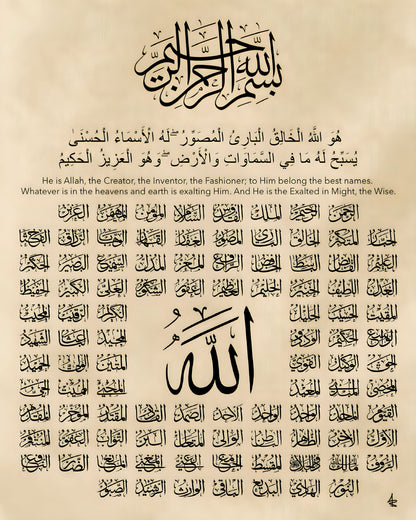 بسم الله الرحمن الرحيم
هُوَ اللَّهُ الْخَالِقُ الْبَارِئُ الْمُصَوِّرُ ۖ لَهُ الْأَسْمَاءُ الْحُسْنَىٰ
يُسَبِّحُ لَهُ مَا فِي السَّمَاوَاتِ وَالْأَرْضِ ۖ وَهُوَ الْعَزِيزُ الْحَكِيمُ
He is Allah, the Creator, the Inventor, the Fashioner; to Him belong the best names.
Whatever is in the heavens and earth is exalting Him. And He is the Exalted in Might, the Wise.
الرحمن الرحيم الملك القدوس السلام المؤمن المهيمن العزيز
الجبار المتكبر الخالق البارئ المصور الغفار القهار الوهاب الرزاق الفتاح
العليم القابض الباسط الخافض الرافع المعز المذل السميع البصير الحكم
العدل اللطيف الخبير الحليم العظيم الغفور الشكور العلي الكبير الحفيظ
المقيت الحسيب الجليل الكريم الرقيب المجيب
الواسع الحكيم الودود المجيد الباعث الشهيد
الله
الحق الوكيل القوي المتين الولي الحميد
المحصي المبدئ المعيد المحيي المميت الحي
القيوم الواجد الماجد الواحد الاحد الصمد القادر المقتدر المقدم المؤخر
الأول الآخر الظاهر الباطن الوالي المتعالي البر التواب المنتقم العفو
الرؤوف مالك الملك ذو الجلال والإكرام المقسط الجامع الغني المغني المانع الضار النافع
النور الهادي البديع الباقي الوارث الرشيد الصبور